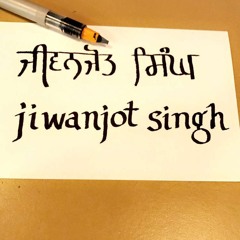 ਜੀਵਨਜੋਤ ਸਿੰਘ
jiwanjot singh